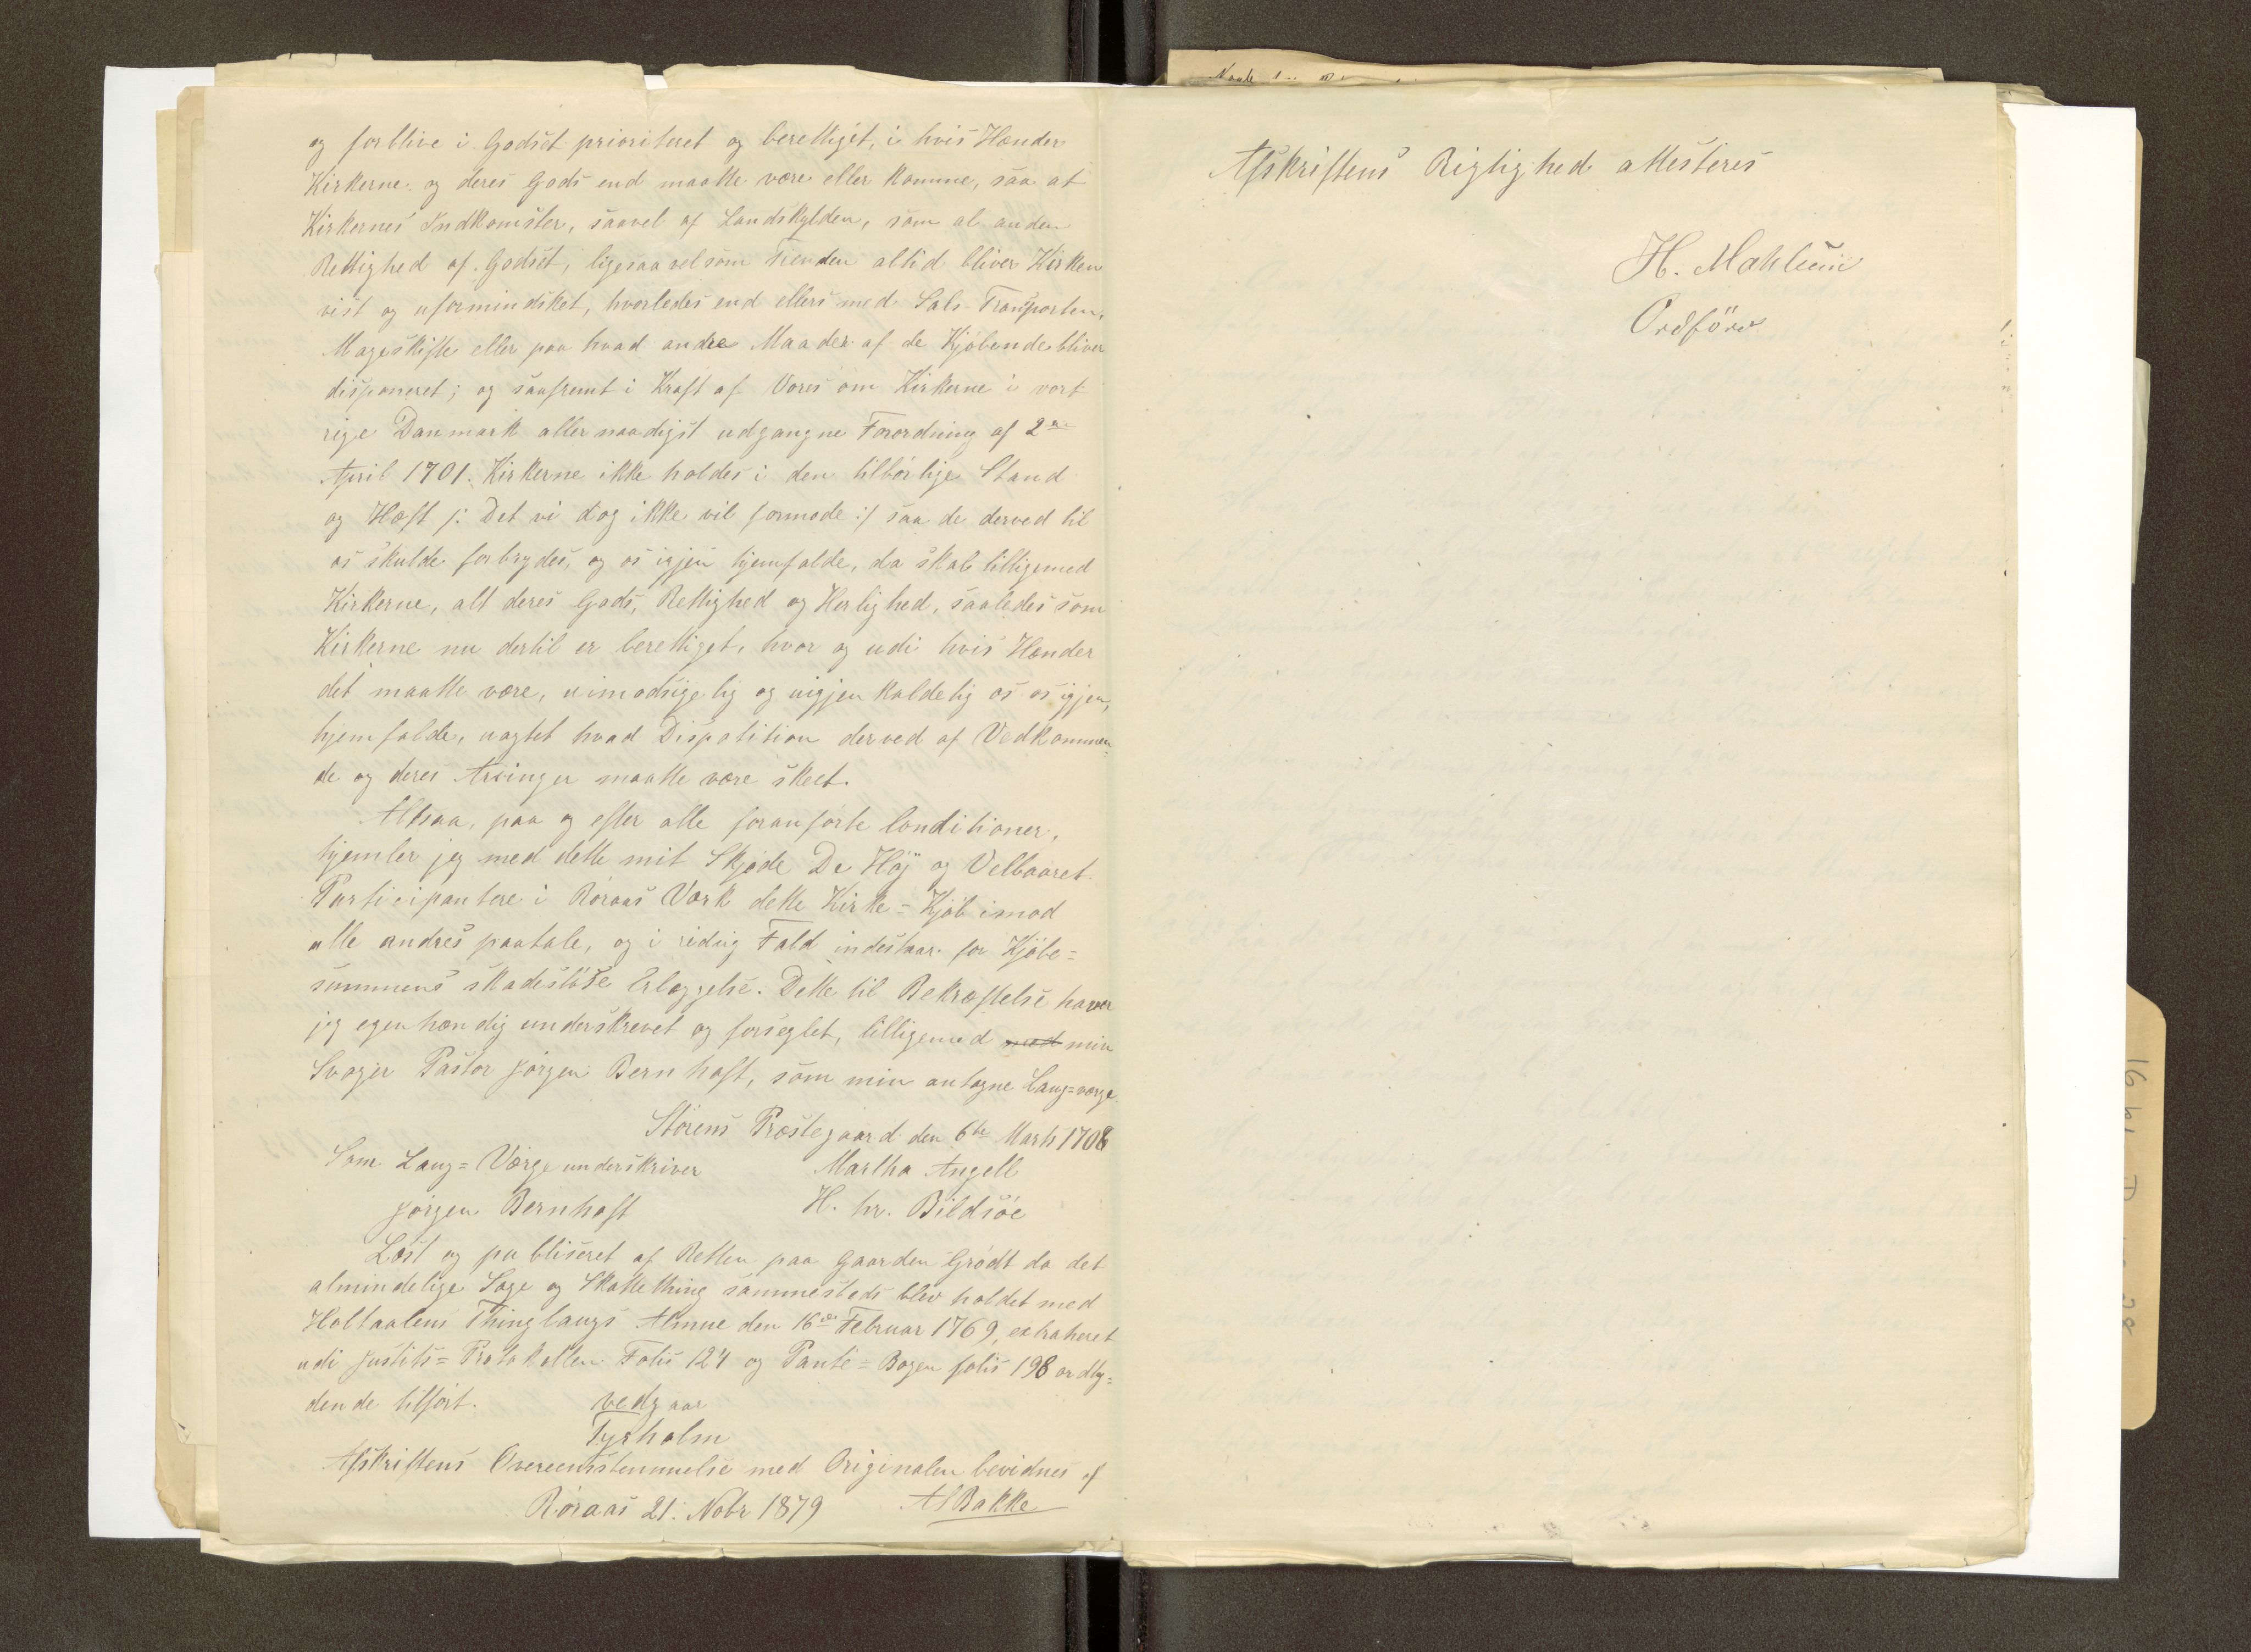 og forblive i Godset prioriteret og berettiget, i hvis Hænder
Kirkerne og deres Gods end maatte være eller komme, saa at
Kirkernes Indkomster, saavel af Landskylden, som al anden
Rettighed af Godset, ligesaavelsom Tienden altid bliver Kirken
vist og uformindsket, hvorledes end ellers med Salg Transporten,
Mageskifte eller paa hvad andre Maader af de Kjøbende bliver
disponeret; og saafremt i Kraft af Vores om Kirkerne i vort
rige Danmark allernaadigst udgangne Forordning af 2den
April 1701. Kirkerne ikke holdes i den tilbørlige Stand
og Hæft /: Det vi dog ikke vil formode :/ saa de derved til
os skulde forbrydes, og os igjen hjemfalde, da skal tilligemed
Kirkerne, alt deres Gods, Rettighed og Herlighed, saaledes som
Kirkerne nu dertil er berettiget, hvor og udi hvis Hænder
det maatte være, uimodsigelig og uigjenkaldelig os os igjen,
hjemfalde, uagtet hvad Dispotition derved af Vedkommen=
de og deres Arvinger maatte være skeet.
Altsaa, paa og efter alle foranførte Conditioner,
hjemler jeg med dette mit Skjøde De Høj og Velbaaret
Participantere i Røraas Værk dette Kirke=Kjøb imod
alle andres paatale, og i vidrig Fald indestaar for Kjøbe=
summens skadesløse Erlæggelse. Dette til Bekræftelse haver
jeg egenhændig underskrevet og forseglet, tilligemed med min
Svoger Pastor Jørgen Bernhoft, som min antagne Laug=værge.
Størens Præstegaard den 6te Marts 1708
Som Laug=Værge underskriver Martha Angell
Jørgen Bernhoft H. hr. Bildsøe
Læst og publiseret af Retten paa Gaarden Grødt da det
almindelige Sage og Skattething sammesteds blev holdet med
Holtaalens Thinglaugs Almue den 16de Februar 1769, extraheret
udi Justits=Protokollen Folio 124 og Pante=Bogen folio 198 ordly=
dende tilført. vedgaar
Tyrholm
Afskriftens Overeensstemmelse med Originalen bevidnes af
Røraas 21. Nobr 1879 AS Bakke
Afskriftens Rigtighed attesteres
H. Mahlum
Ordfører